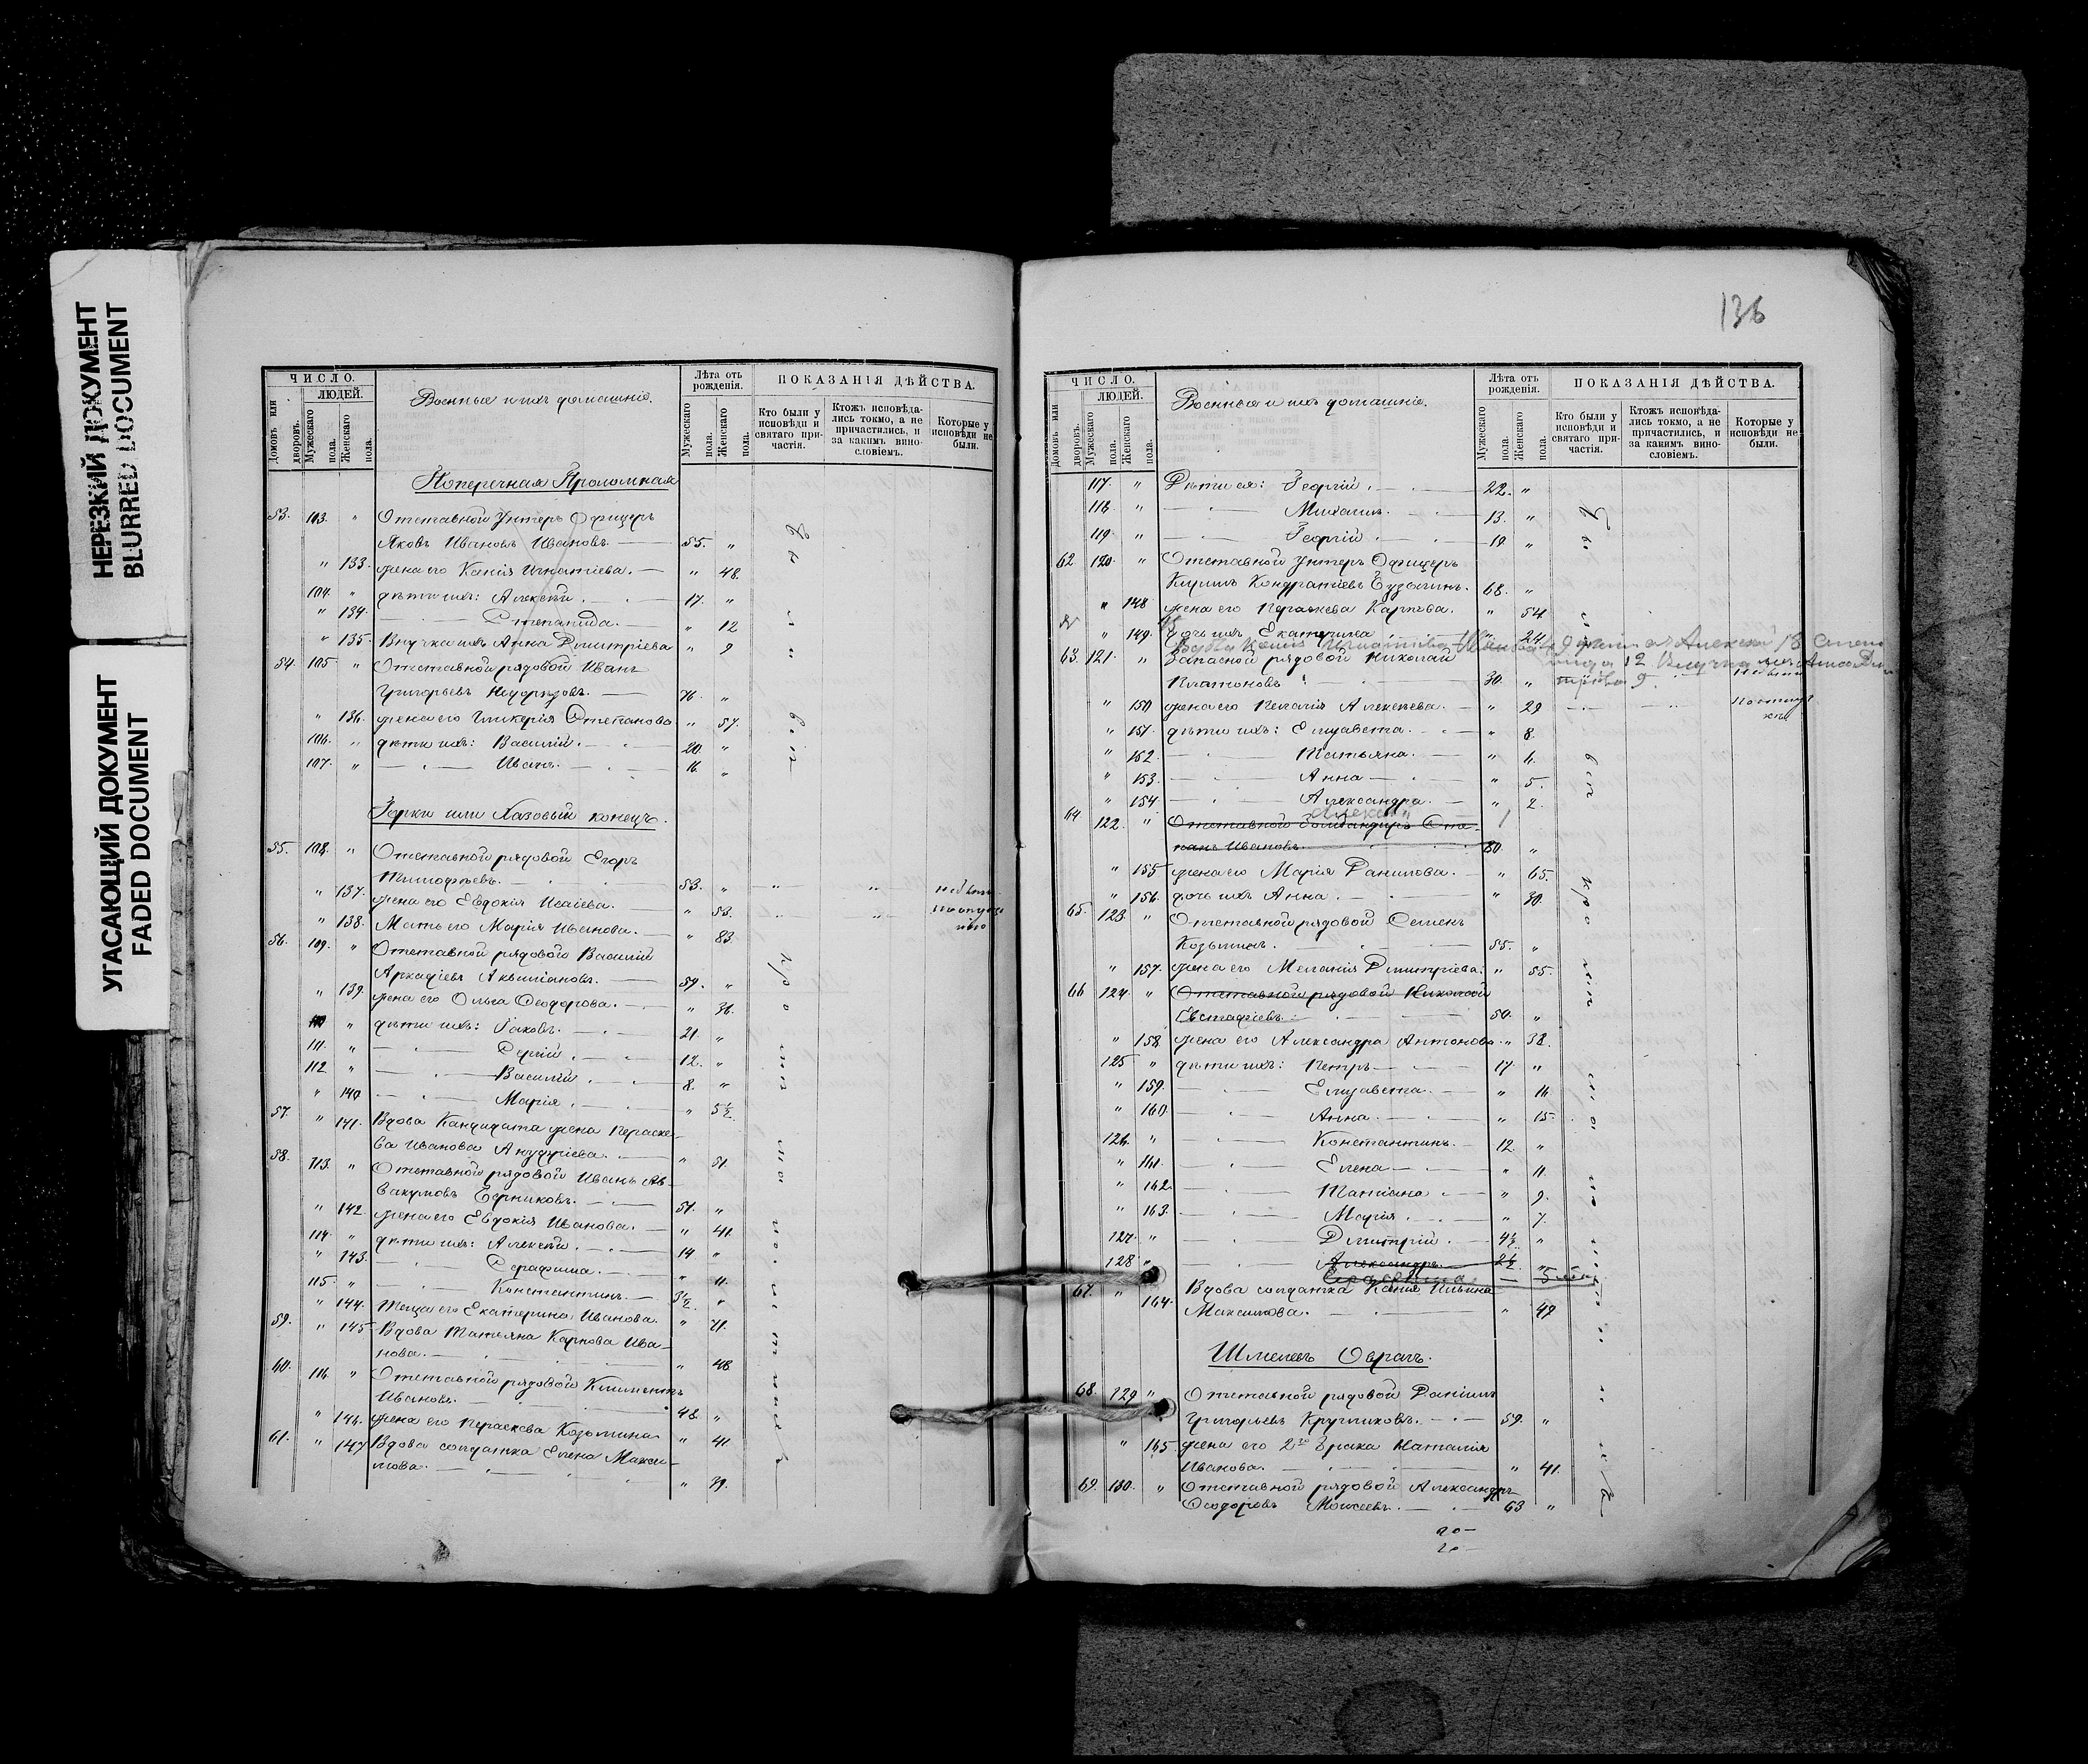 НЕРЕЗКИЙ ДОКУМЕНТ
BLURRED DOCUMENT
УГАСАЮЩИЙ ДОКУМЕНТ
FADED DOCUMENT
ЧИСЛО.
ЛЮДЕЙ.
Домовъ или дворовъ.
Мужескаго пола.
Женскаго пола.
Военные и ихъ домашніе.
Лѣта отъ рожденія.
Мужескаго пола.
Женскаго пола.
ПОКАЗАНІЯ ДѢЙСТВА.
Кто были у исповѣди и святаго причастія.
Ктожъ исповѣдались токмо, а не причастились, и за какимъ винословіемъ.
Которые у исповѣди не были.
Поперечная Проломная
53. 103. " Отставной Унтеръ Офицеръ
Яковъ Ивановъ Ивановъ. 55. "
" 133. жена его Ксенія Игнатіева. " 48.
104. " дѣти ихъ: Алексѣй. 17. "
" 134. Степанида. " 12
" 135. Внучка ихъ Анна Димитріева " 9
54. 105 " Отставной рядовой Иванъ
Григорьевъ 76. "
" 136. жена его Гликерія Степанова. " 57.
106. " дѣти ихъ: Василій. 20. "
107. " Иванъ. 16. "
Горки или Казовый конецъ.
55. 108. " Отставной рядовой Егоръ
Тимофѣевъ. 53. " " "
" 137. жена его Евдокія Исаіева. " 53.
" 138. Мать его Марія Иванова. " 83.
56. 109. " Отставной рядовой Василій
Аркадіевъ 59. "
" 139. жена его Ольга Ѳеодорова. " 36.
110 " дѣти ихъ: Іаковъ. 21. "
111. " Сергій. 12. "
112 " Василій. 8. "
" 140 Марія. " 5½.
57. " 141. Вдова Кандидата жена Параске-
ва Иванова Ануфріева. " 51.
58. 113. " Отставной рядовой Иванъ Ав-
вакумовъ 51. "
" 142. жена его Евдокія Иванова. " 41.
114. " дѣти ихъ: Алексѣй. 14 "
" 143. Серафима. " 11.
115. " Константинъ. 3½. "
" 144. Теща его Екатерина Иванова. " 71.
59. " 145. Вдова Татьяна Карпова Ива-
нова. " 48
60. 116. " Отставной рядовой Климентъ
Ивановъ. 48. "
" 146. жена его Параскева Козьмина " 41.
61. " 147 Вдова солдатка Елена Макси-
мова. " 39.
136
ЧИСЛО.
ЛЮДЕЙ.
Домовъ или дворовъ.
Мужескаго пола.
Женскаго пола.
Военные и ихъ домашніе.
Лѣта отъ рожденія.
Мужескаго пола.
Женскаго пола.
ПОКАЗАНІЯ ДѢЙСТВА.
Кто были у исповѣди и святаго причастія.
Ктожъ исповѣдались токмо, а не причастились, и за какимъ винословіемъ.
Которые у исповѣди не были.
117. " Дѣти ея: Георгій. 22. "
118. " Михаилъ. 13. "
119. " Георгій. 19. "
62. 120. " Отставной Унтеръ Офицеръ
Кондратіевъ 68. "
" 148 жена его Параскева Карпова. " 54.
" 149. дочь ихъ Екатерина " 24.
Вдова Ксенія Игнатіева Иванова 49 дѣти ея Алексѣй 18 Степа
нида 12 Внучка ихъ Анна Ди
тріева 9.
63. 121. " Запасной рядовой Николай
Платоновъ 30. "
" 150 жена его Пелагія Алексѣева. " 29
" 151. дѣти ихъ: Елизавета. " 8.
" 152. Татьяна. " 6.
" 153. Анна " 5.
" 154. Александра. " 2.
64 122. " Отставной Бомбандиръ Сте-
панъ Ивановъ. 80. "
" 155 жена его Марія Данилова. " 65.
" 156. дочь ихъ Анна. " 30.
65. 123. " Отставной рядовой Семенъ
Козьминъ. 55. "
" 157. жена его Меланія Димитріева. " 55.
66 124. " Отставной рядовой Николай
Евстафіевъ. 50. "
" 158. жена его Александра Антонова " 38.
125 " дѣти ихъ: Петръ 17. "
" 159. Елизавета. " 16.
" 160. Анна. " 15.
126. " Константинъ. 12. "
" 161. Елена " 11.
" 162. Татіана " 9.
" 163. Марія. " 7.
127. " Димитрій. 4½. "
128 " Александръ. 2½. "
67. " 164. Вдова солдатка Ксенія Ильина
Максимова. " 49
Шмелевъ Оврагъ.
68. 129 " Отставной рядовой Даніилъ
Григорьевъ Кругликовъ. 59. "
" 165 жена его 2го брака Наталія
Иванова. " 41.
69. 130. " Отставной рядовой Александръ
Ѳеодоровъ Моисеевъ. 63 "